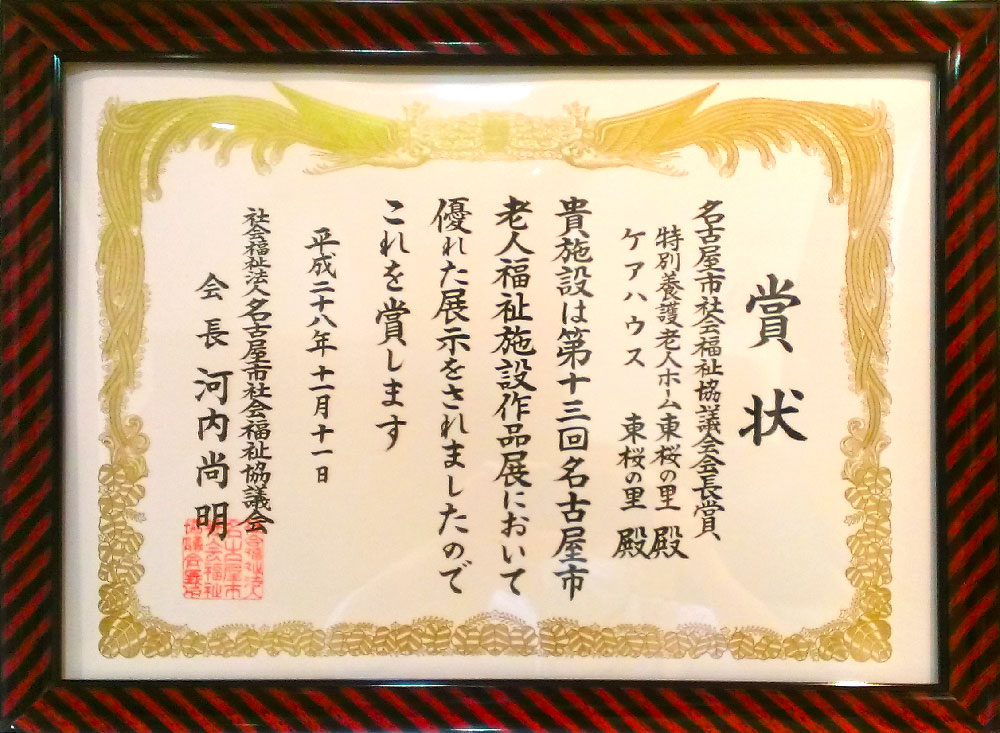 賞状
名古屋市社会福祉協議会会長賞
特別養護老人ホーム東桜の里 殿
ケアハウス 東桜の里 殿
貴施設は第十三回名古屋市
老人福祉施設作品展において
優れた展示をされましたので
これを賞します
平成二十八年十一月十一日
社会福祉法人名古屋市社会福祉協議会
会長 河内尚明